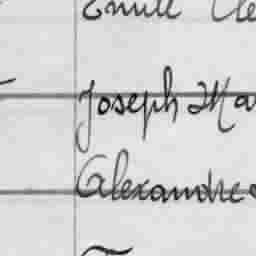 Emile
Joseph Ma
Alexandre